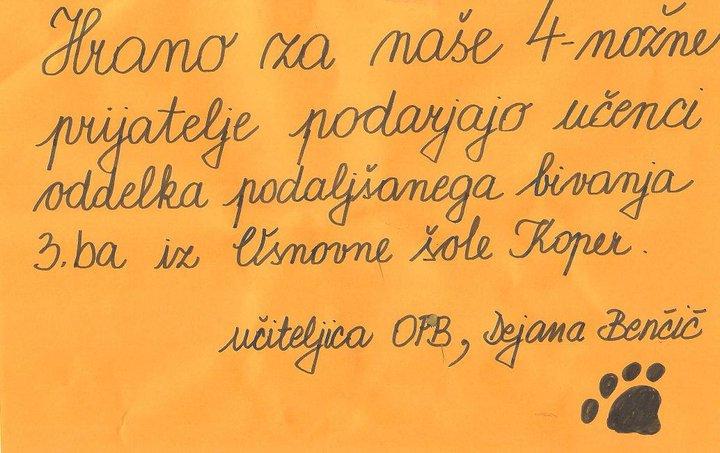 Hrano za naše 4-nožne
prijatelje podarjajo učenci
oddelka podaljšanega bivanja
3.ba iz Osnovne šole Koper.
učiteljica OPB, Dejana Benčič